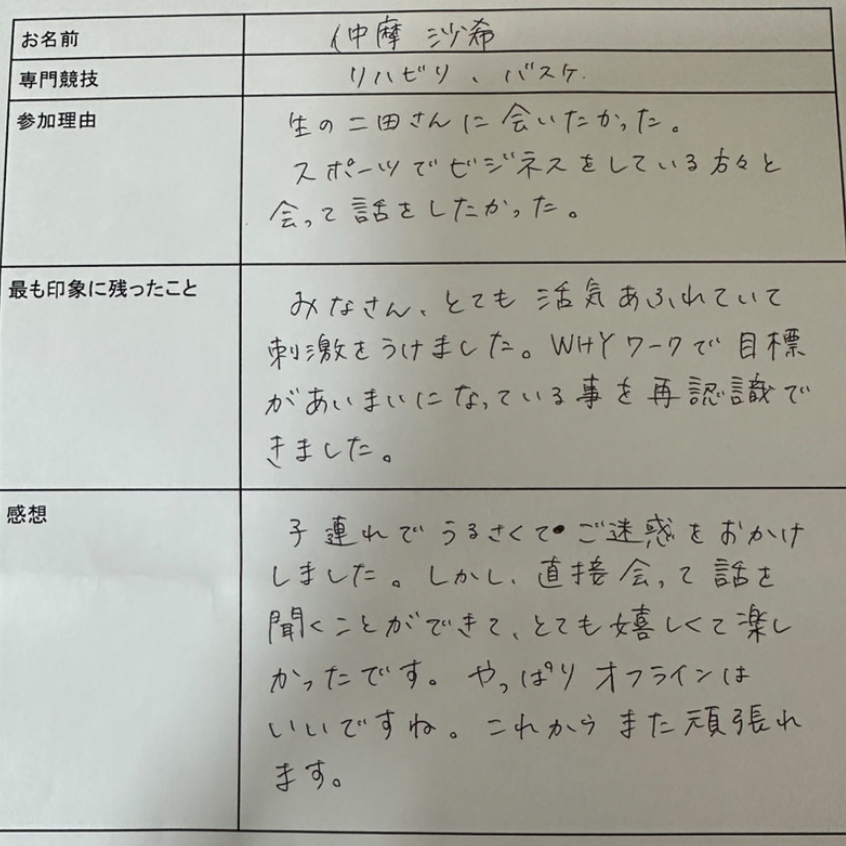 お名前 仲摩 沙希
専門競技 リハビリ、バスケ.
参加理由 生の二田さんに会いたかった。
スポーツでビジネスをしている方々と
会って話をしたかった。
最も印象に残ったこと みなさん、とても活気あふれていて
刺激をうけました。WHYワークで目標
があいまいになっている事を再認識で
きました。
感想 子連れでうるさくて ご迷惑をおかけ
しました。しかし、直接会って話を
聞くことができて、とても嬉しくて楽し
かったです。やっぱりオフラインは
いいですね。これからまた頑張れ
ます。